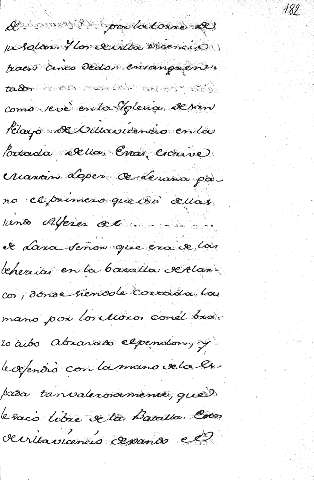 182
de por la torre de
su Solar. Y los de villa vicencio
traen cinco dedos ensangren
tados
como se vé en la Yglesia de San
Pelayo de Villavicencio en la
Portada della. Escrive
Martin Lopez de Lezana
no el primero que dellas
siendo Alferez de
de Lara Señor que era de las
beherias en la batalla de Alar
cos, donde siendole cortada la
mano por los Moros con el bra
zo tubo abrazado el pendon, y
le defendió con la mano de la Es
pada tan valerosamente, que
le sacó libre de la Batalla. Estos
de villavicencio dexando el